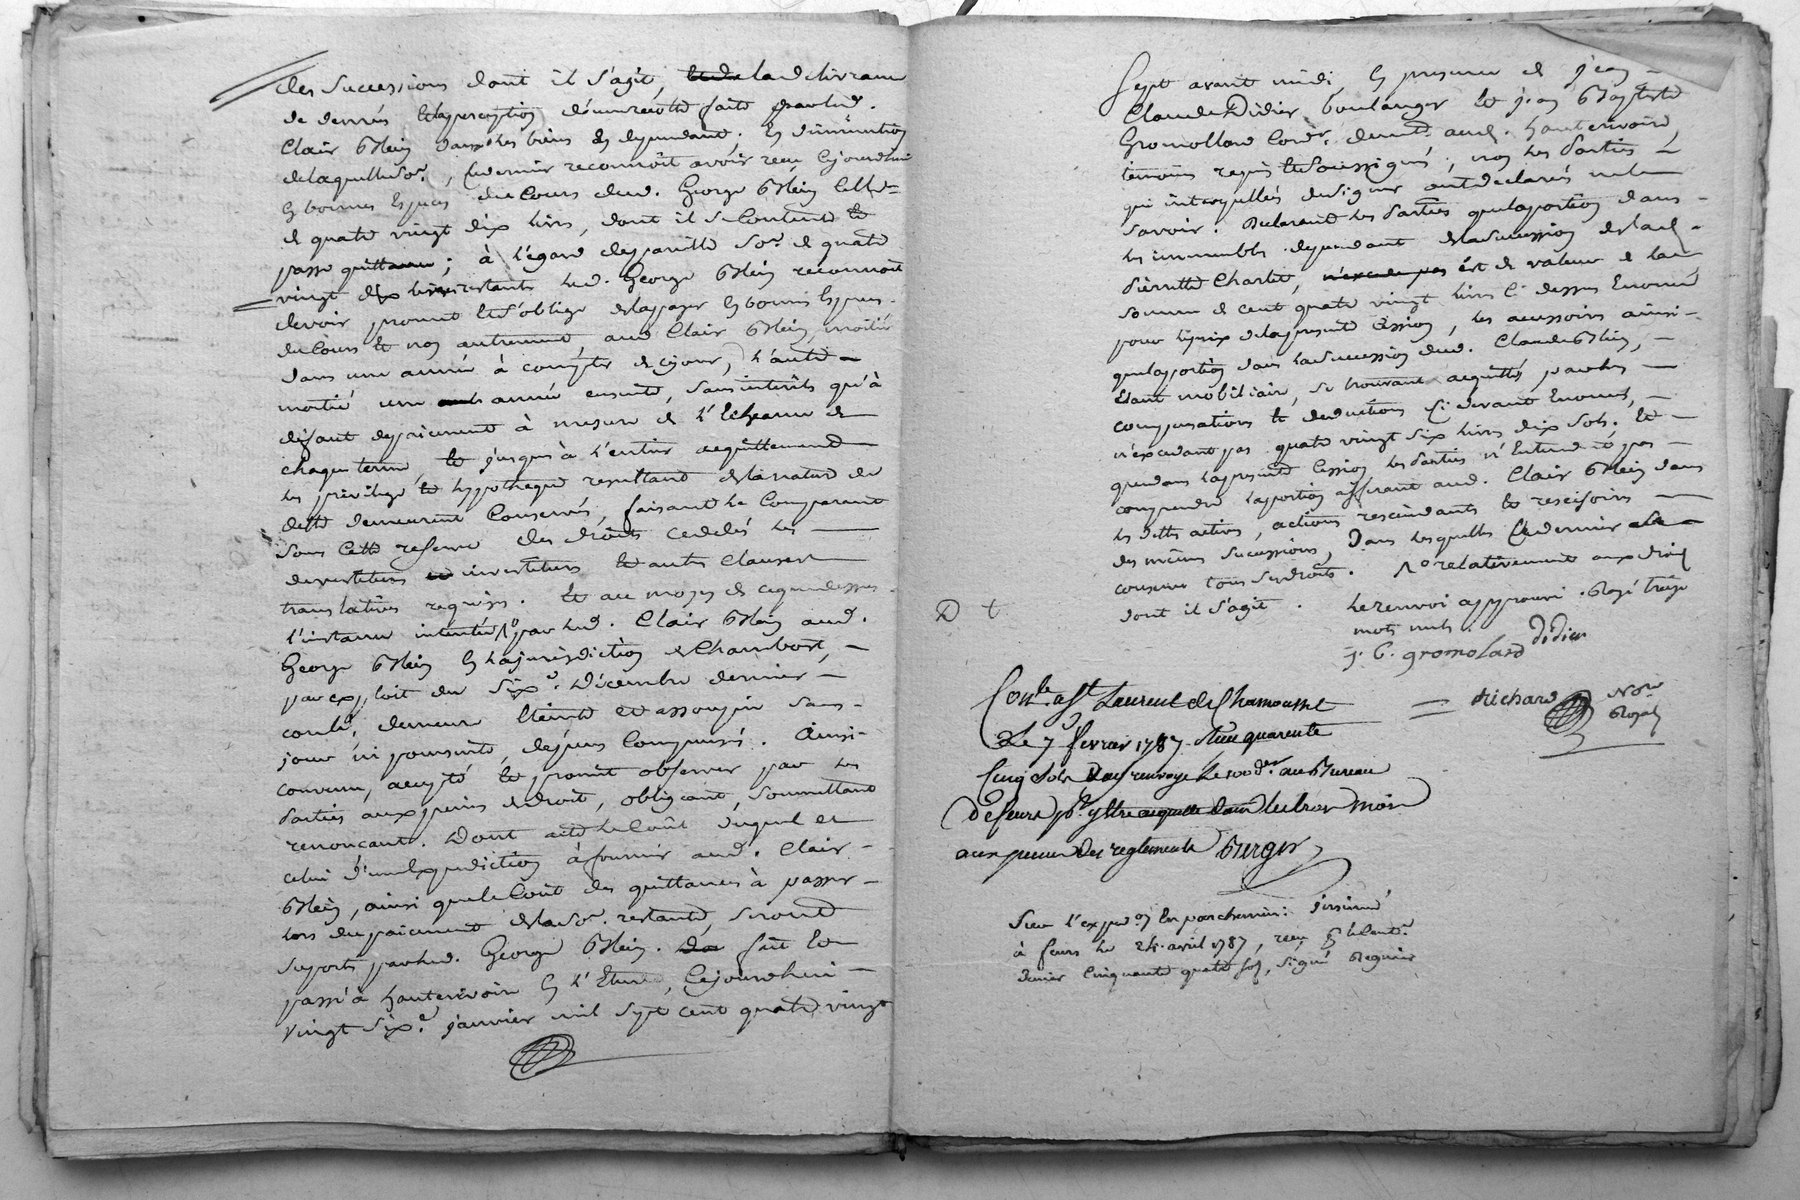 des successions dont il s'agit, la delivrance
de denrées et la perception d'une recolte faite par led.
Clair Blein dans les biens en dependant; En diminution
de laquelle so.e, Ce dernier reconnoit avoir reçu ce jourdhui
En bonnes Especes du Cours dud. George Blein Celle
de quatre vingt dix livres, dont il se Contente et
passe quittance; à l'égard de pareille so.e de quatre
vingt dix livres restante led. George Blein reconnoit
devoir promet et s'oblige de la payer En bonnes Especes
du Cours et non autrement, aud. Clair Blein, moitié
dans une année à compter de ce jour, l'autre
moitié une année ensuite, sans interêts qu'à
défaut de paiement à mesure de l'Echeance de
chaque terme, et jusqu'à l'entier acquittement
les privilege et hypotheque resultant de la nature du
dette demeurent Conservés, faisant le Comparant
sous cette reserve des droits cedelés les
devestiture investiture et autres clauses
translatives requises. Et au moyen de ce que dessus
l'instance intentée par led. Clair Blein aud.
George Blein En la jurisdiction de Chambost,
par exploit du Six.e Décembre dernier
conlé, demeure Eteinte et assoupie sans
jour ni poursuite, depens Compensés. Ainsi
convenu, accepté et promis observer par les
Parties aux peines de droit, obligeant, soumettant
renonçant. Dont acte le Coût duquel et
celui d'une Expedition à fournir aud. Clair
Blein, ainsi que le Coût des quittances à passer
lors du paiement de la so.e restante, seront
suportés par led. George Blein. fait et
passé à hauterivoire En l'Etude, Cejourdhui
vingt six.e janvier mil sept cent quatre vingt
Sept avant midi En presence de jean
Claude Didier boulanger et jean Baptiste
Gromollard Cord.r demt. aud. hauterivoire,
temoins requis et Soussignés, non les Parties
qui interpellées de signer ont declarés ne le
savoir. Declarent les Parties que la portion dans
les immeubles dependant de la succession de lad.
Pierrette Charlet, n'excede pas est de valeur de la
somme de cent quatre vingt livres Ci dessus Enoncé
pour le prix de la presente Cession, les accessoirs ainsi
que la portion dans la Succession dud. Claude Blein,
Etant mobiliaire, se trouvant acquittés par les
compensations et deductions Ci devant Enoncés,
n'excedant pas quatre vingt six livres dix sols. Et
que dans la presente Cession les Parties n'Entendent pas
comprendre la portion afferante aud. Clair Blein dans
les dettes actives, actions rescindants et rescisoires
des mêmes successions, Dans lesquelles Ce dernier
conserve tous ses droits. relativement aux droits
dont il s'agit. Le renvoi approuvé. Rayé treize
mots nuls.
didier
j. B. gromolard
Richard
Not.re
Royal
Con.lé a St Laurent de Chamousset
Le 7 fevrier 1787. Reçu quarente
Cinq Sols Day renvoyé Le 100.der au Bureau
De feurs p.r y Etre acquitté dans les trois mois
aux peines Des reglements Berger
Sur l'exped.on En parchemin: Insinué
à feurs le 24. avril 1787, reçu le Cent.e
denier Cinquante quatre sols, signé Regnier